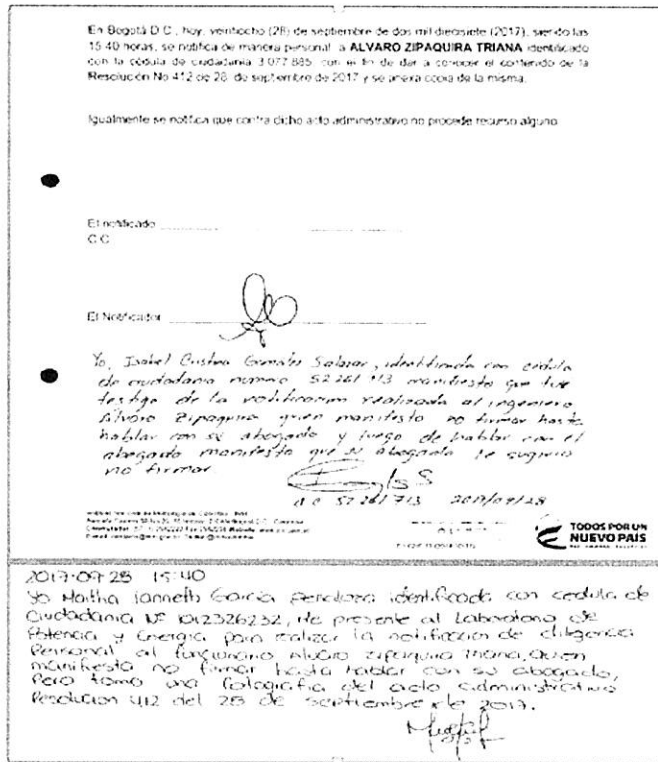 En Bogotá D.C., hoy, veintiocho (28) de septiembre de dos mil diecisiete (2017), siendo las
15:40 horas, se notifica de manera personal a ALVARO ZIPAQUIRA TRIANA identificado
con la cédula de ciudadanía 3.077.885, con el fin de dar a conocer el contenido de la
Resolución No 412 de 28 de septiembre de 2017 y se anexa copia de la misma.
Igualmente se notifica que contra dicho acto administrativo no procede recurso alguno
El notificado
C.C
El Notificador
Yo, Isabel Cristina González Salazar, identificada con cédula
de ciudadanía número 52 261 713 manifiesto que fui
testigo de la notificación realizada al ingeniero
Alvaro Zipaquira quien manifestó no firmar hasta
hablar con su abogado y luego de hablar con el
abogado manifestó que su abogado le sugirió
no firmar
52 261 713 2017/09/28
TODOS POR UN
NUEVO PAÍS
2017-09-28 15:40
Yo Martha Ianneth García identificada con cedula de
Ciudadania Nº 1012326232, me presente al Laboratorio de
Potencia y Energia para realizar la notificación de diligencia
Personal al funcionario Alvaro Zipaquira Triana, Quien
manifiesta no firmar hasta hablar con su abogado,
Pero tomo una fotografia del acto administrativo
Resolucion 412 del 28 de septiembre de 2017.